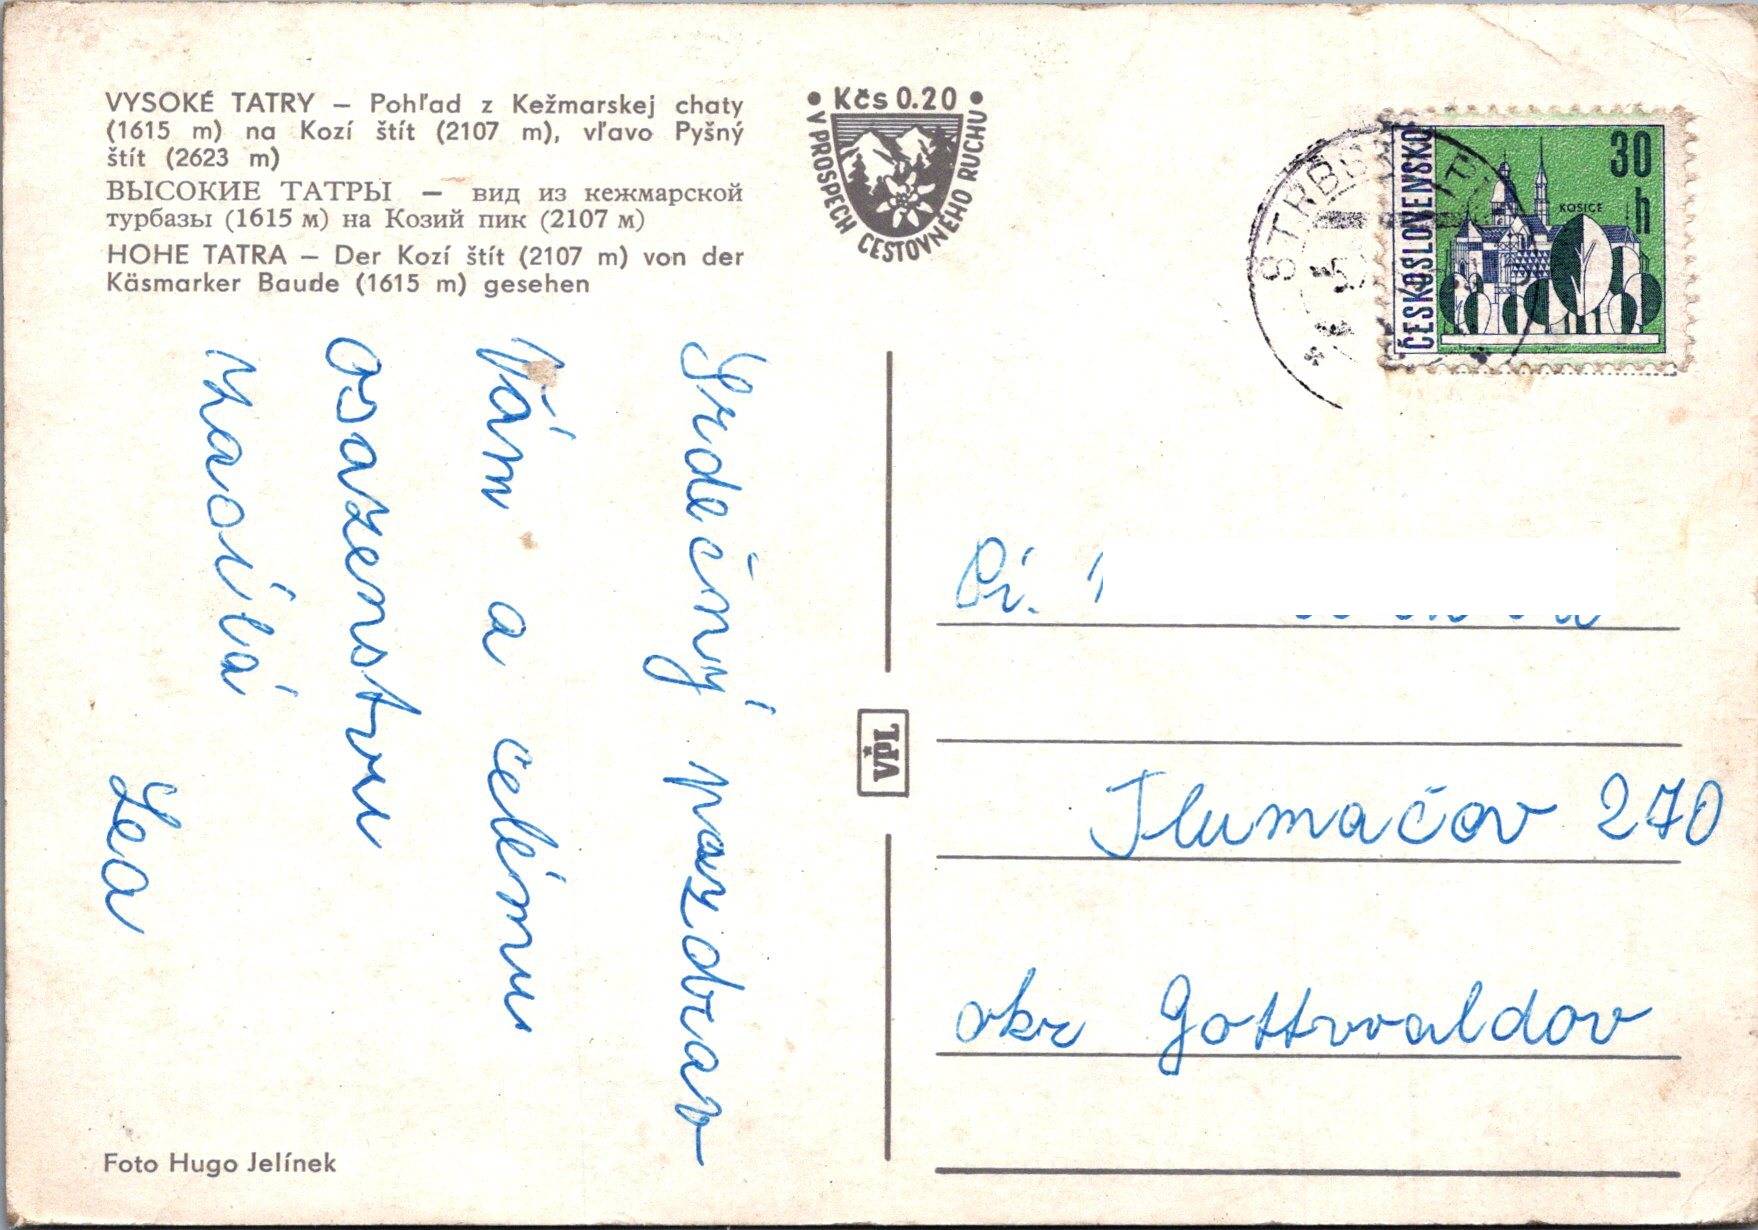 VYSOKÉ TATRY – Pohľad z Kežmarskej chaty
(1615 m) na Kozí štít (2107 m), vľavo Pyšný
štít (2623 m)
ВЫСОКИЕ ТАТРЫ – вид из кежмарской
турбазы (1615 м) на Козий пик (2107 м)
HOHE TATRA – Der Kozí štít (2107 m) von der
Käsmarker Baude (1615 m) gesehen
• Kčs 0.20 •
V PROSPECH CESTOVNÉHO RUCHU
ČESKOSLOVENSKO
30 h
KOŠICE
Srdečný pozdrav
Vám a celému
osazenstvu
zasílá
Lea
VPL
Pí.
Tlumačov 270
okr Gottwaldov
Foto Hugo Jelínek